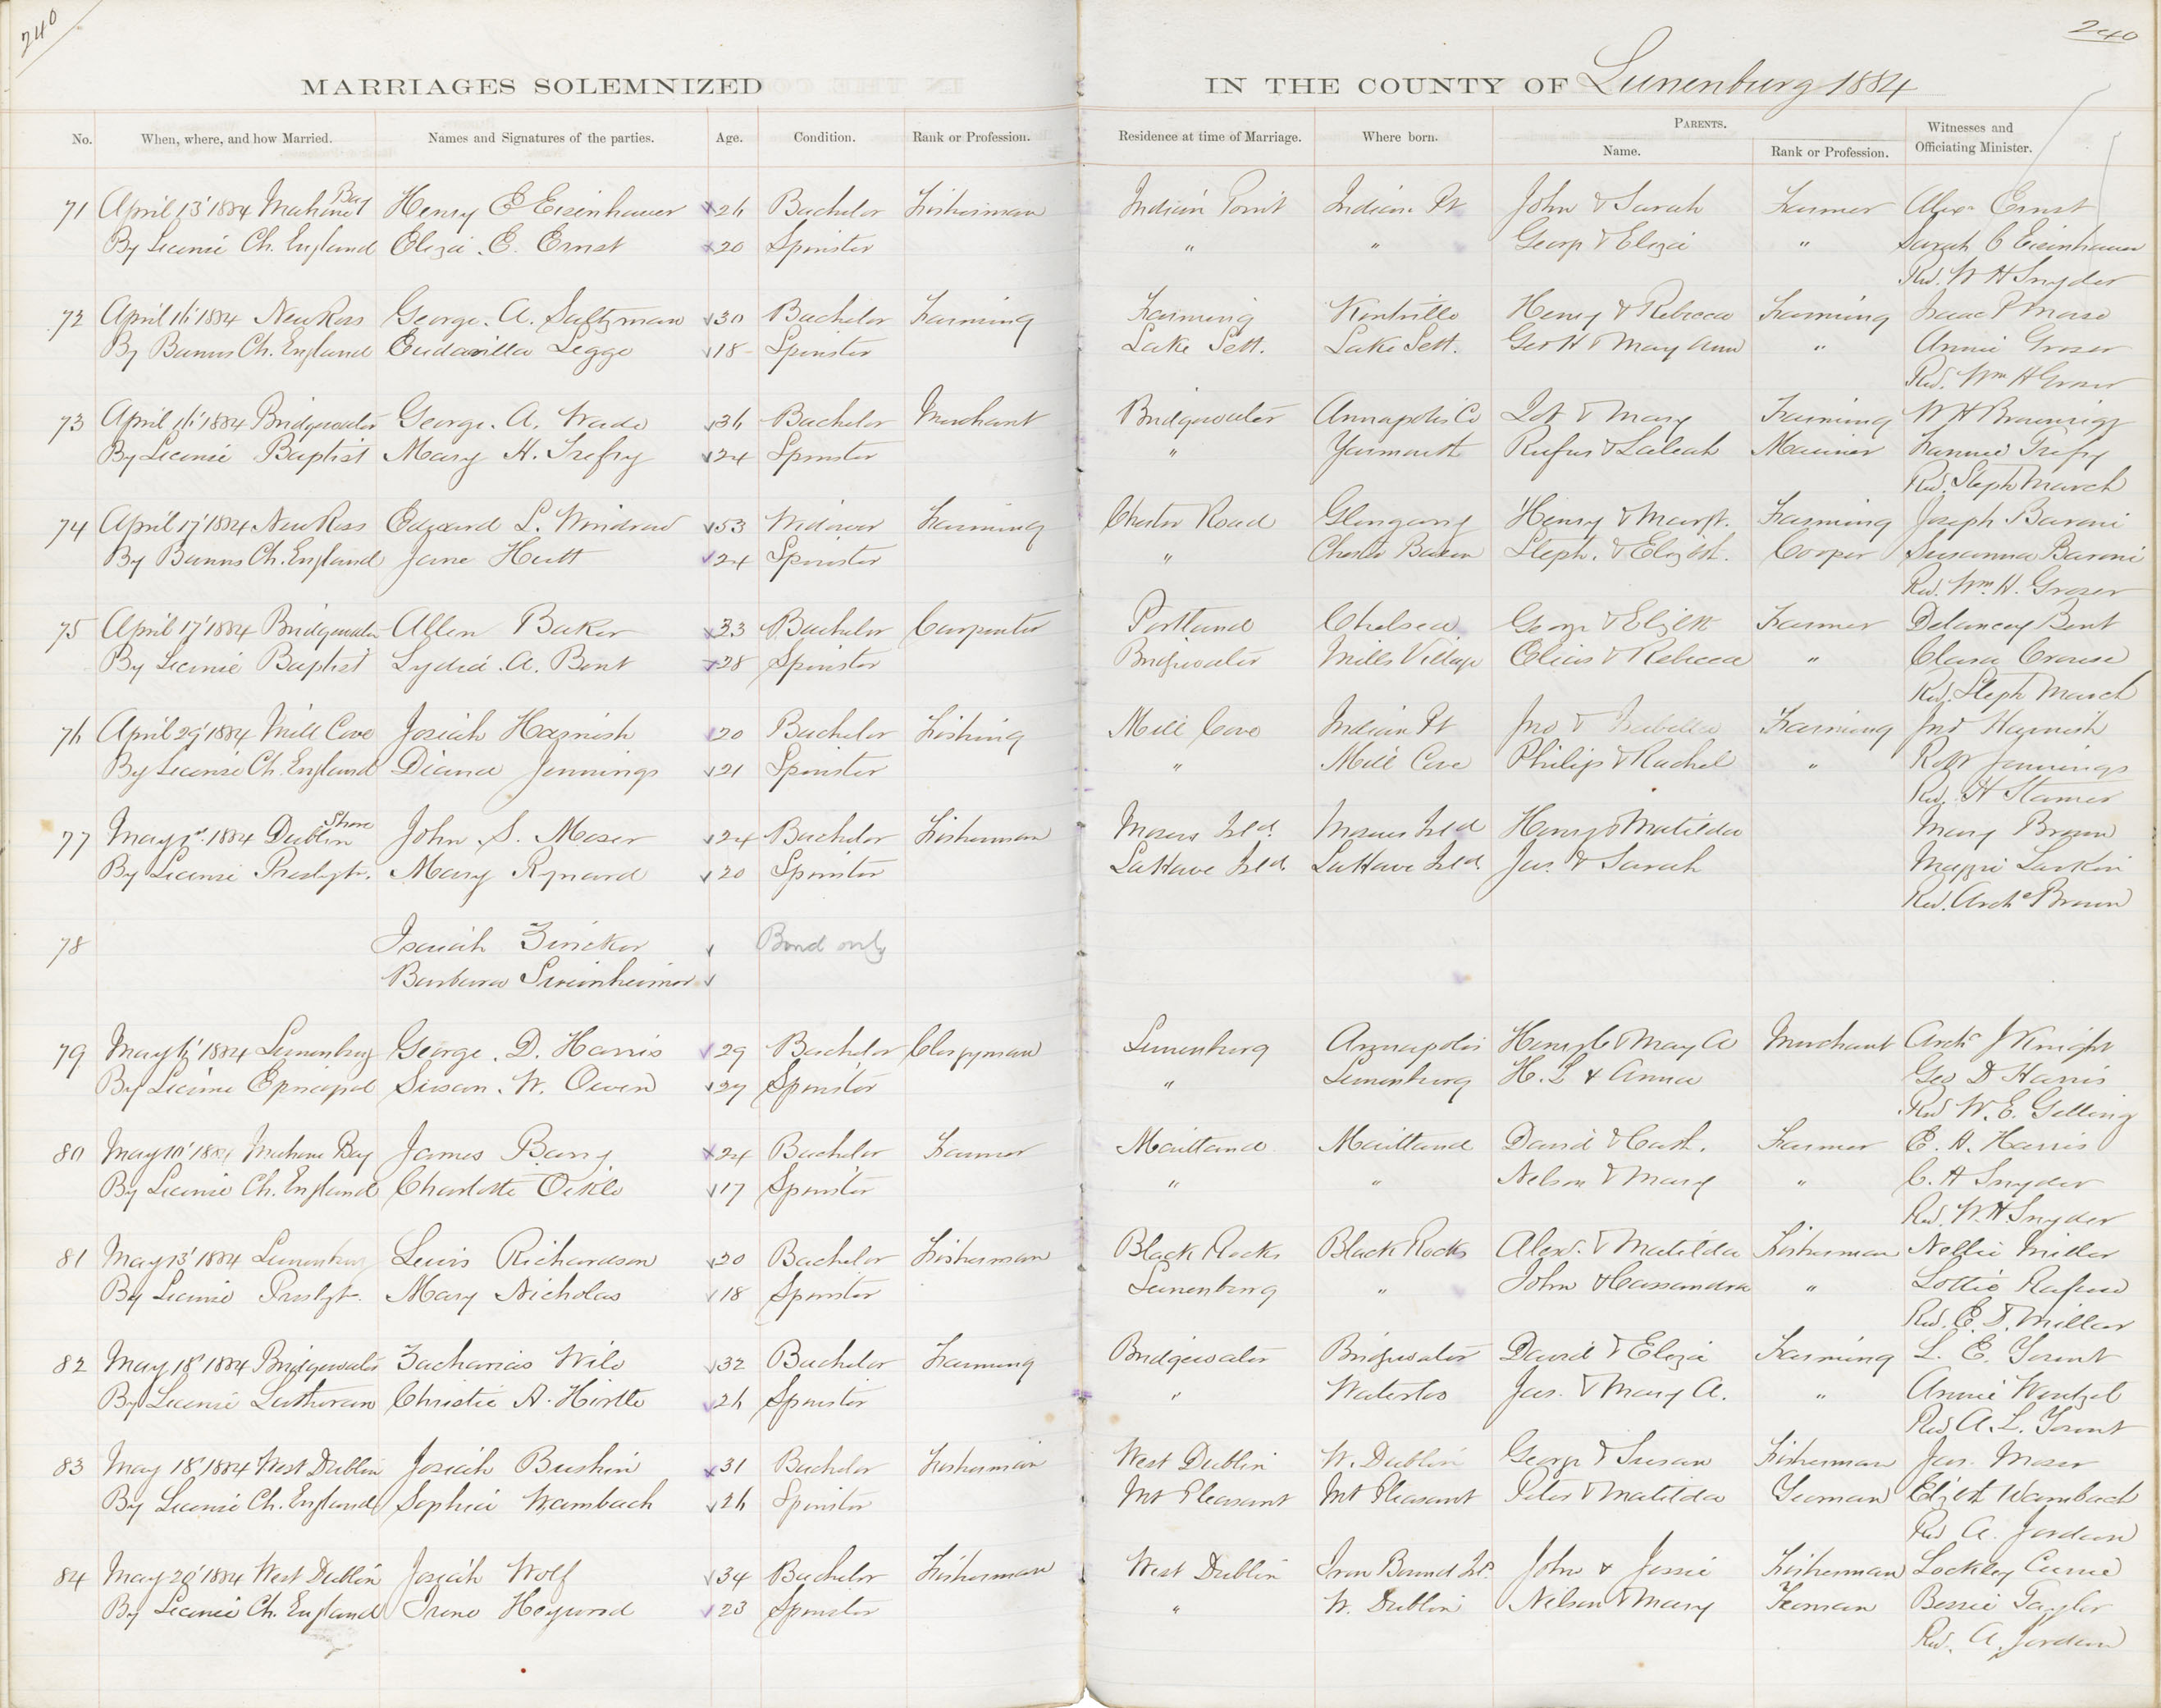 240
240
MARRIAGES SOLEMNIZED IN THE COUNTY OF Lunenburg 1884
No. When, where, and how Married. Names and Signatures of the parties. Age. Condition. Rank or Profession. Residence at time of Marriage. Where born. PARENTS. Name. Rank or Profession. Witnesses and Officiating Minister.
Bay
71 April 13' 1884 Mahone Henry E Eisenhauer 26 Bachelor Fisherman Indian Point Indian Pt John & Sarah Farmer Alex Ernst
By License Ch. England Eliza E. Ernst 20 Spinster " " Georg & Eliza " Sarah C Eisenhauer
Rev. W H Snyder
72 April 16' 1884 New Ross George. A. Saltzman 30 Bachelor Farming Farming Kentville Henry & Rebecca Farming Isaac P
By Banns Ch. England Legge 18 Spinster Lake Sett. Lake Sett. Geo H & Mary Ann " Annie Groser
Rev. Wm H Groser
73 April 16' 1884 Bridgewater George. A. Wade 36 Bachelor Merchant Bridgewater Annapolis Co Lot & Mary Farming W H
By License Baptist Mary H. Trefry 24 Spinster " Yarmouth Rufus & Mariner Fannie Trefry
Rev. Steph March
74 April 17' 1884 New Ross Edward L. Windrow 53 Widower Farming Chester Road Glengarry Henry & Margt. Farming Joseph
By Banns Ch. England Jane Hutt 24 Spinster " Chester Basin Steph. & Elizbth. Cooper Susanna
Rev. Wm. H. Groser
75 April 17' 1884 Bridgewater Allen Baker 33 Bachelor Carpenter Portland Chelsea Georg & Elizbth Farmer Delancey Bent
By License Baptist Lydia. A. Bent 28 Spinster Bridgewater Mills Village Elias & Rebecca " Clara Crouse
Rev. Steph March
76 April 29' 1884 Mill Cove Josiah Harnish 20 Bachelor Fishing Mill Cove Indian Pt Jno & Isabella Farming Jno Harnish
By License Ch. England Diana Jennings 21 Spinster " Mill Cove Philip & Rachel " Robt Jennings
Rev. H Stamer
Shore
77 May 1st 1884 Dublin John S. Moser 24 Bachelor Fisherman Mosers Isld. Mosers Isld Henry & Matilda Mary Brown
By License Presbyt. Mary Rynard 20 Spinster LaHave Isld. LaHave Isld. Jas. & Sarah Maggie Larkin
Rev. Archd Brown
78 Isaiah Zincker Bond only
Barbara Swinehimer
79 May 6' 1884 Lunenburg George. D. Harris 29 Bachelor Clergyman Lunenburg Annapolis Henry & Mary A Merchant Archd J Knight
By License Episcopal Susan. W. Owen 27 Spinster " Lunenburg H. L & Anna Geo D Harris
Rev W. E. Gelling
80 May 10' 1884 Mahone Bay James Barry 24 Bachelor Farmer Maitland Maitland David & Cath. Farmer E. H. Harris
By License Ch. England Charlotte Oickle 17 Spinster " " Nelson & Mary " C. H Snyder
Rev. W. H. Snyder
81 May 13' 1884 Lunenburg Lewis Richardson 20 Bachelor Fisherman Black Rocks Black Rocks Alexr. & Matilda Fisherman Nellie Millar
By License Presbyt. Mary Nicholas 18 Spinster Lunenburg " John & Cassandra " Lottie Rafuse
Rev. E. D. Millar
82 May 18' 1884 Bridgewater Zacharias Wile 32 Bachelor Farming Bridgewater Bridgewater David & Eliza Farming L. E. Yount
By License Lutheran Christie A. Hirtle 26 Spinster " Waterloo Jas. & Mary A. " Annie Wentzel
Rev. A. L. Yount
83 May 18' 1884 West Dublin Josiah Bushin 31 Bachelor Fisherman West Dublin W. Dublin Georg & Susan Fisherman Jas. Moser
By License Ch. England Sophia Wambach 26 Spinster Mt Pleasant Mt Pleasant Peter & Matilda Yeoman Elizbth Wambach
Rev A. Jordan
84 May 20' 1884 West Dublin Josiah Wolf 34 Bachelor Fisherman West Dublin Iron Bound Isl. John & Jessie Fisherman Lockley Currie
By License Ch. England Irene Heywood 23 Spinster " W. Dublin Nelson & Mary Yeoman Bessie Taylor
Rev. A. Jordan